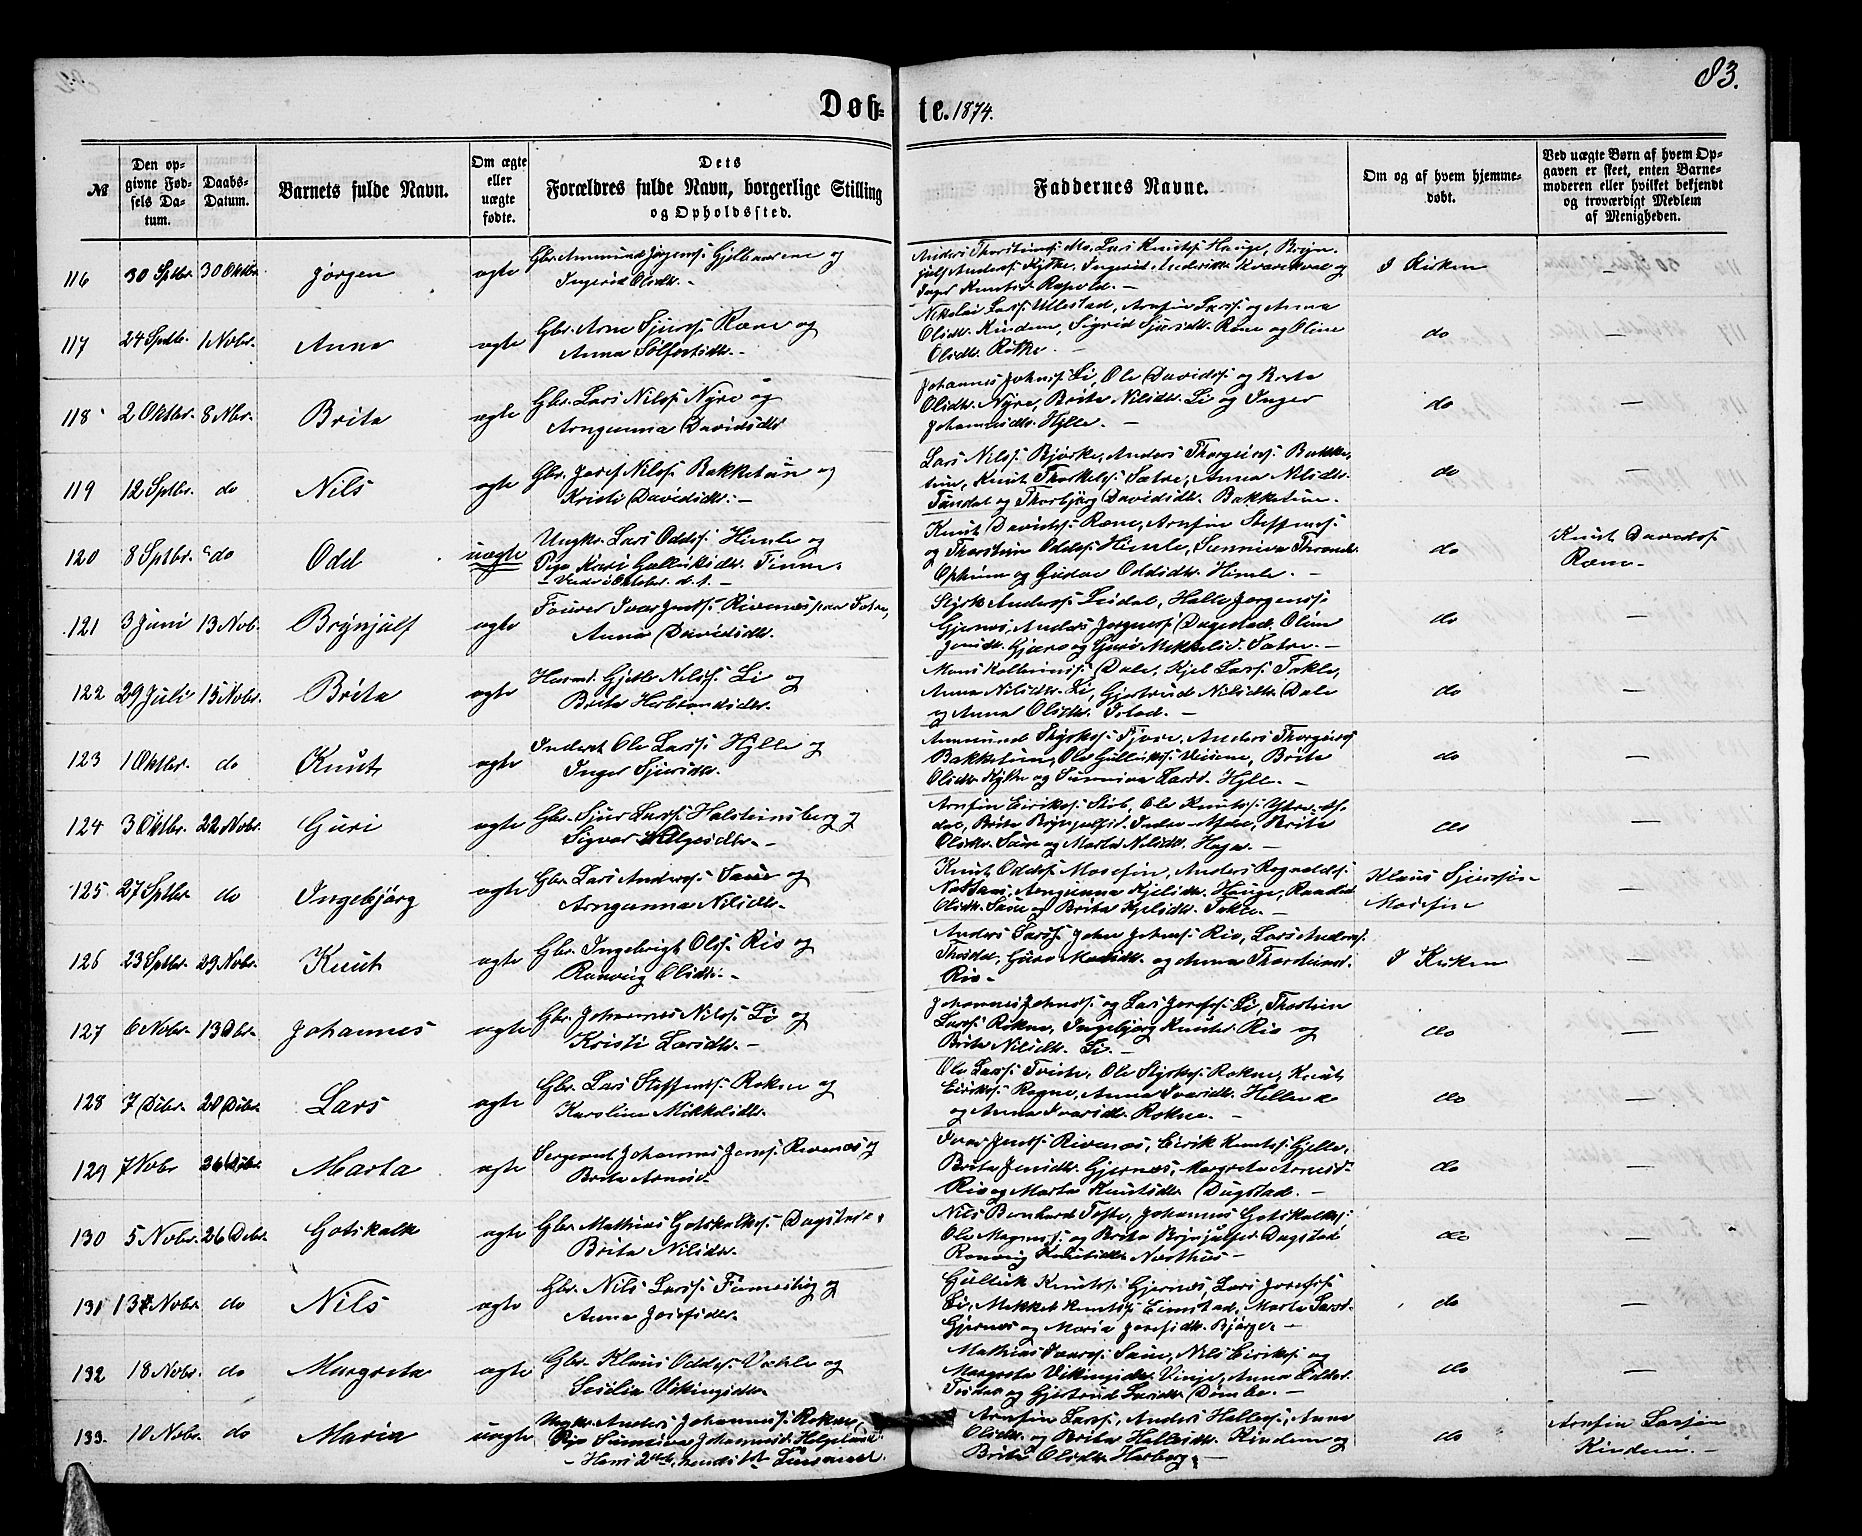 83.
Døbte. 1874.
№
Den opgivne Fødsels Datum.
Daabs-Datum.
Barnets fulde Navn.
Om ægte eller uægte fødte.
Dets Forældres fulde Navn, borgerlige Stilling og Opholdssted.
Faddernes Navne.
Om og af hvem hjemmedøbt.
Ved uægte Børn af hvem Opgaven er skeet, enten Barnemoderen eller hvilket bekjendt og troværdigt Medlem af Menigheden.
116 30 Sptbr. 30 Oktbr. Jørgen ægte
Gbr. Ammund Jørgens. Gjelbaarene og
Ingerid Olsdtr. —
Anders Thorsteinss. Mo, Lars Knuts. Hauge, Brynjulf Anders. Kytte, Ingerid Andersdtr. Kvarekval og
Inger Knutsd. Rapold. —
I Kirken —
117 24 Sptbr. 1 Nobr. Anna ægte
Gbr. Arne Sjurs. Rene og
Anna Solfestsdtr. —
Nikolai Lars. Ullestad, Arnfin Lars. og Anna
Olsdtr. Kinden, Sigrid Sjursdtr. Rene og Oline
Olsdtr. Rokke. —
do —
118 2 Oktbr. 8 Nbr. Brita ægte
Gbr. Lars Nils. Nyre og
Arngunna Davidsdtr
Johannes Johns. Li, Ole Davids. og Brita
Olsdtr. Nyre, Brita Nilsdtr. Li og Inger
Johannesdtr. Hylle. —
do —
119 12 Sptbr. do Nils ægte
Gbr. Josef Nils. Bakketun og
Kristi Davidsdtr. —
Lars Nils. Bjørke, Anders Thorgeirs. Bakketun, Knut Thorkels. Sætre, Anna Nilsdtr.
Tundal og Thorbjørg Davidsdtr. Bakketun. —
do —
120 8 Sptbr. do Odd uægte
Ungkr. Lars Odds. Himle og
Pige Kari Gulliksdtr. Finne
Knut Davids. Rene, Arnfin Steffens.
og Thorstein Odds. Himle, Sunniva Thronds.
Opheim og Gudve Oddsdtr. Himle. —
do
Knut Davids.
Rene —
121 3 Juni 13 Nob. Brynjulf ægte
Fourer Ivar Jens. Rivenæs paa Sætre,
Anna Davidsdtr.
Styrk Anders. Leidal, Halle Jørgens.
Gjernes, Anders Jørgens. Dagestad, Oline
Jensdtr. Gjæro og Guri Mikkelsd. Sætre. —
do —
122 29 Juli 15 Nobr. Brita ægte
Husmd. Gjetle Nils. Li og
Brita Herbrandsdtr.
Mons Kolbeins. Dale, Kjel Lars. Takle,
Anna Nilsdtr. Li, Gjertrud Nilsdtr. Dale
og Anna Olsdtr. Istad. —
do —
123 1 Oktbr. do Knut ægte
Inderst Ole Lars. Hylle og
Inger Sjursdtr.
Ammund Styrks. Fjose, Anders Thorgeirs
Bakketun, Ole Gulliks. Veiene, Brita
Olsdtr. Kytte og Sunniva Larsd. Hylle. —
do —
124 3 Oktbr. 22 Nobr. Guri ægte
Gbr. Sjur Lars. Halsteinsberg og
Sigvor Helgesdtr. —
Arnfin Eiriks. Ole Knuts.
Brita Brynjulfsd. Brita
Olsdtr. Saue og Marta Nilsdtr. Haga. —
do —
125 27 Sptbr. do Ingebjørg ægte
Gbr. Lars Anders. Saue og
Arngunna Nilsdtr. —
Knut Odds. Mosefin, Anders Rognalds.
Arngunna Kjelsdtr. Hauge,
Olsdtr. Saue og Brita Kjelsdtr. Takle. —
Klaus Sjursøn
Mosefin —
126 23 Sptbr. 29 Nobr. Knut ægte
Gbr. Ingebrigt Ols. Rio og
Ranveig Olsdtr. —
Anders Lars. John Johns. Rio, Lars Anders.
Guro og Anna Thorsteinsd.
Rio —
I Kirken —
127 6 Nobr. 13 Dbr. Johannes ægte
Gbr. Johannes Nils. Li og
Kristi Larsdtr. —
Johannes Johns. og Lars Josefs. Li, Thorstein
Lars. Rokne, Ingebjørg Knutsd. Rio og
Brita Nilsdtr. Li. —
do —
128 7 Debr. 20 Debr. Lars ægte
Gbr. Lars Steffens. Rokne og
Karolina Mikkelsdtr.
Ole Lars. Tvite, Ole Styrks. Rokne, Knut
Eiriks. Rogne, Anna Ivarsdtr. Hellende
og Anna Ivarsdtr. Rokne. —
do —
129 7 Nobr 26 Debr. Marta ægte
Sergeant Johannes Jens. Rivenæs og
Brita Arnesd.
Ivar Jens. Rivenæs, Eirik Knuts. Gjelle,
Brita Jensdtr. Gjernæs, Margreta Arnesd.
Rio og Marta Knutsdtr Dugstad. —
do —
130 5 Nobr. 26 Debr. Gotskalk ægte
Gbr. Mathias Gotskalks. Dagestad,
Brita Nilsdtr.
Nils Bernhard Tofte, Johannes Gotskalks.
Ole Magnus. og Brita Brynjulfsd. Dagstad
Ranveig Knutsdtr. Næsthus —
do —
131 13 Nobr. do Nils ægte
Gbr. Nils Lars. Fenneslig og
Anna Josefsdtr.
Gullik Knuts. Gjernæs, Lars Josefs.
Li, Mikkel Knuts. Eimstad, Marta Larsd.
Gjernæs og Maria Josefsdtr. Bjørge. —
do —
132 18 Nobr. do Margreta ægte
Gbr. Klaus Odds. Væhle og
Sesilia Vikingsdtr
Mathias Ivars. Saue, Nils Eiriks. og
Margreta Vikingsdtr. Vinje, Anna
og Gjertrud Larsdtr. Dømbe. —
do —
133. 10 Nobr. do Maria uægte
Ungkr. Anders Johannes. Rokne,
Pige Sunniva Johannesd. Helgeland
Arnfin Lars., Anders Halles., Anna
Olsdtr. og Brita Hallesdtr. Kindem og
Brita Olsdtr. Harberg. —
do
Arnfin Larsøn
Kindem. —